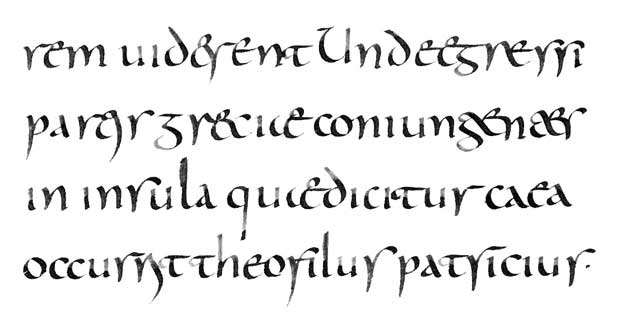 rem uiderent Unde egressi
partes greciae coniungentes
in insula quae dicitur caea
occurrit theofilus patricius.